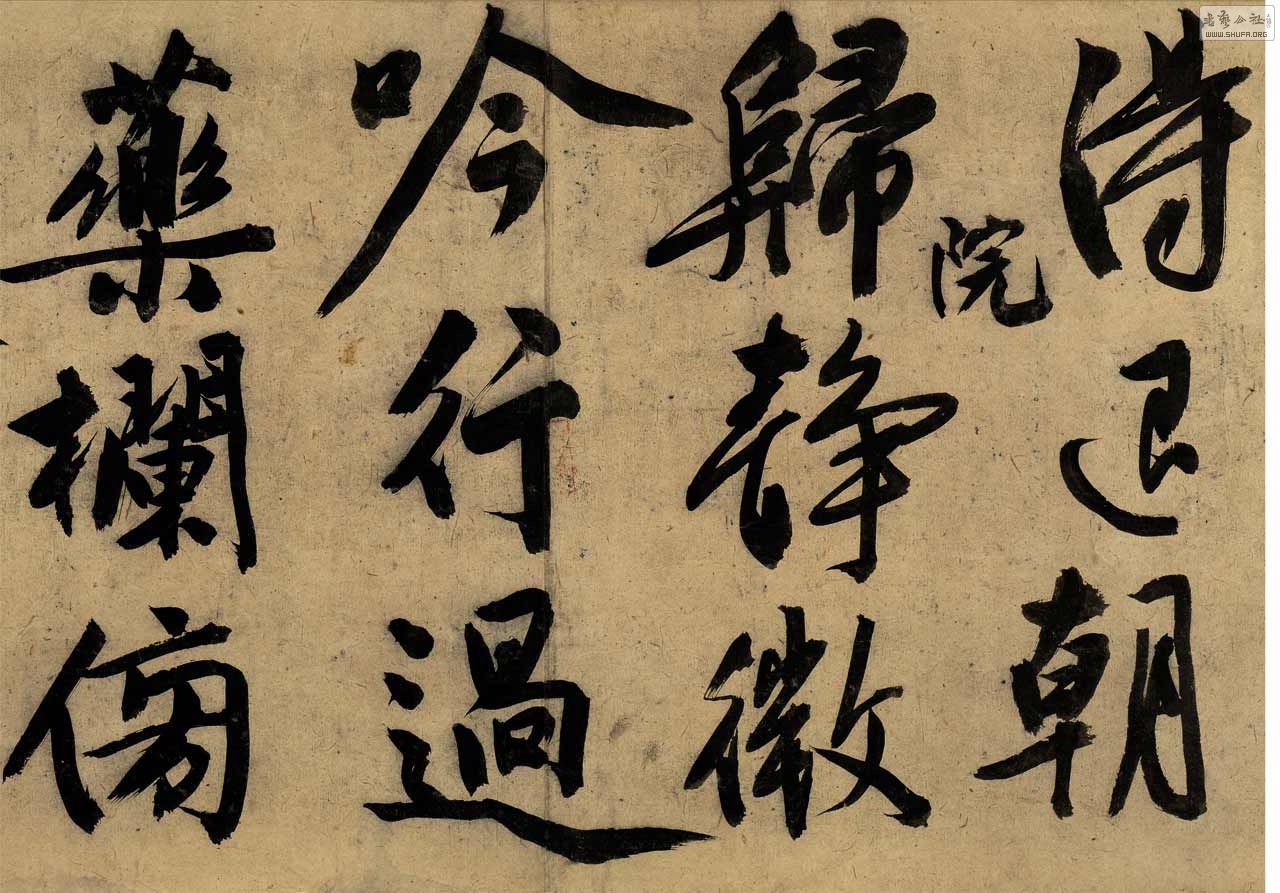 待退朝
歸院靜微
吟行過
藥欄傍
書藝公社
WWW.SHUFA.ORG